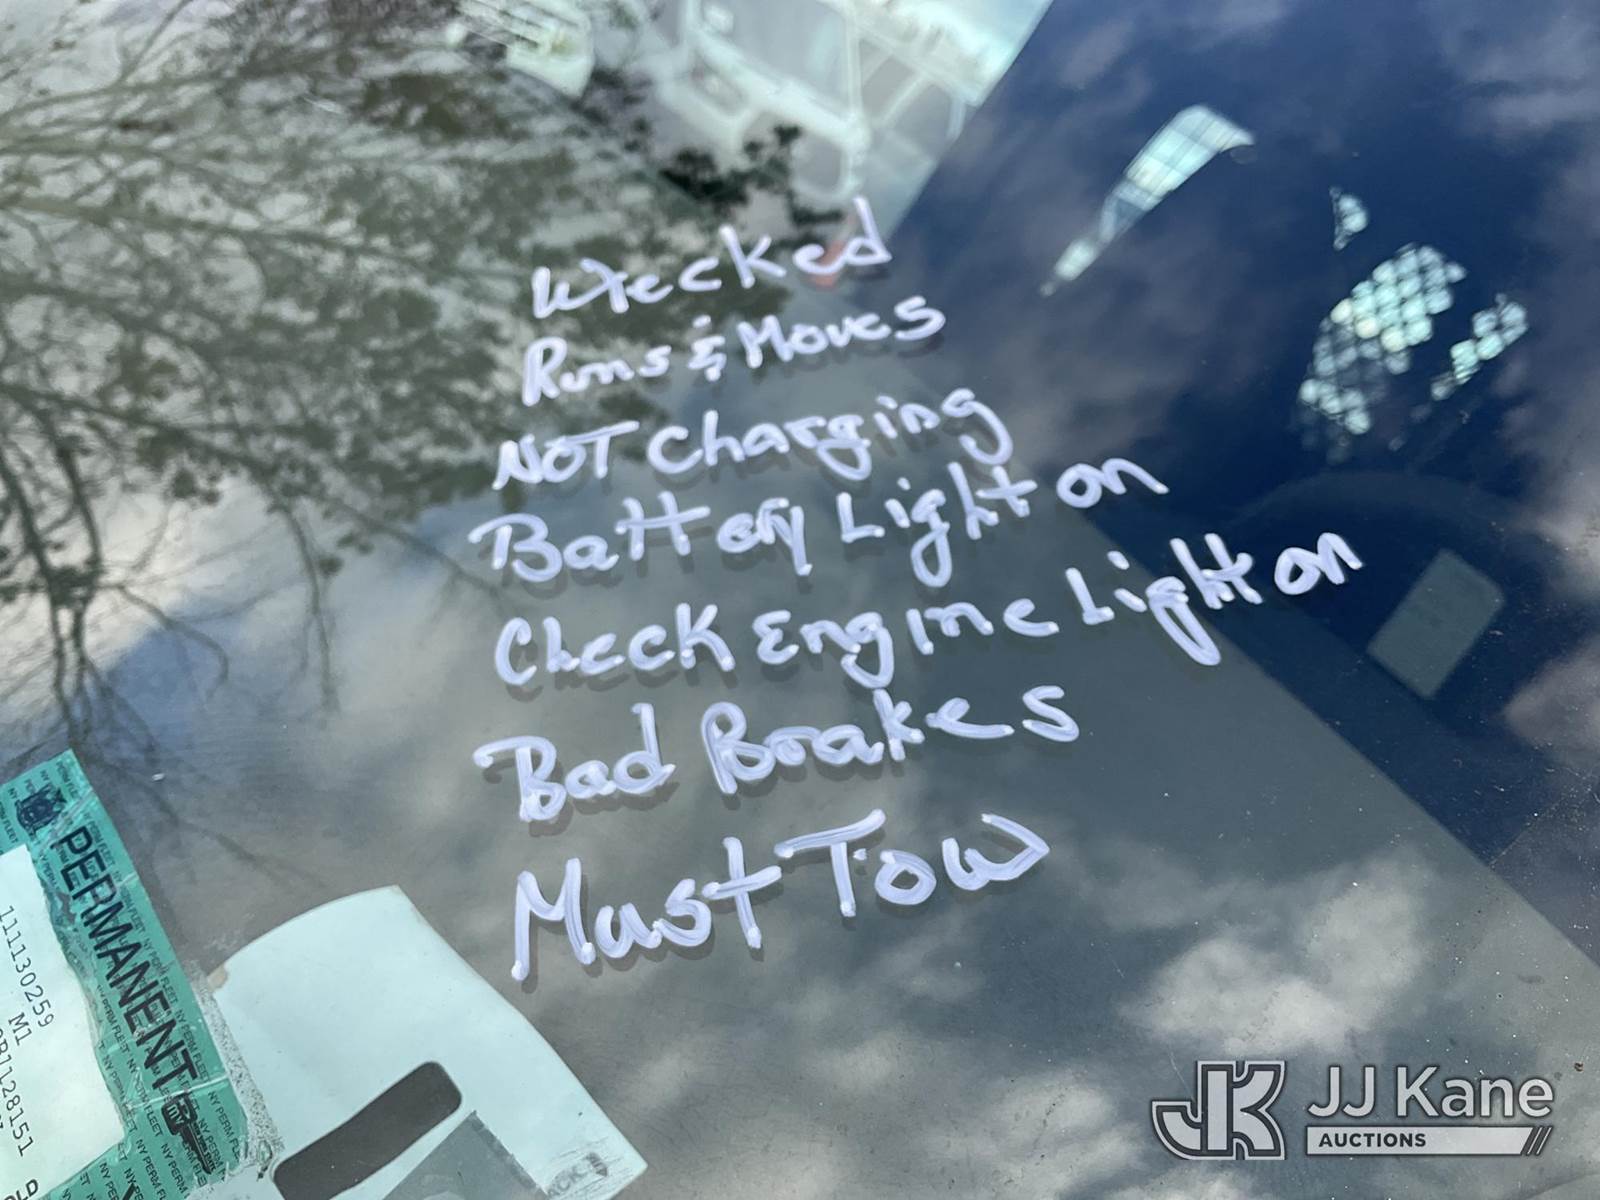 Wrecked
Runs & Moves
NOT Charging
Battery Light on
Check Engine Light on
Bad Brakes
Must Tow
PERMANENT
NY PERM FLEET
111130259
M1
JJ Kane
AUCTIONS